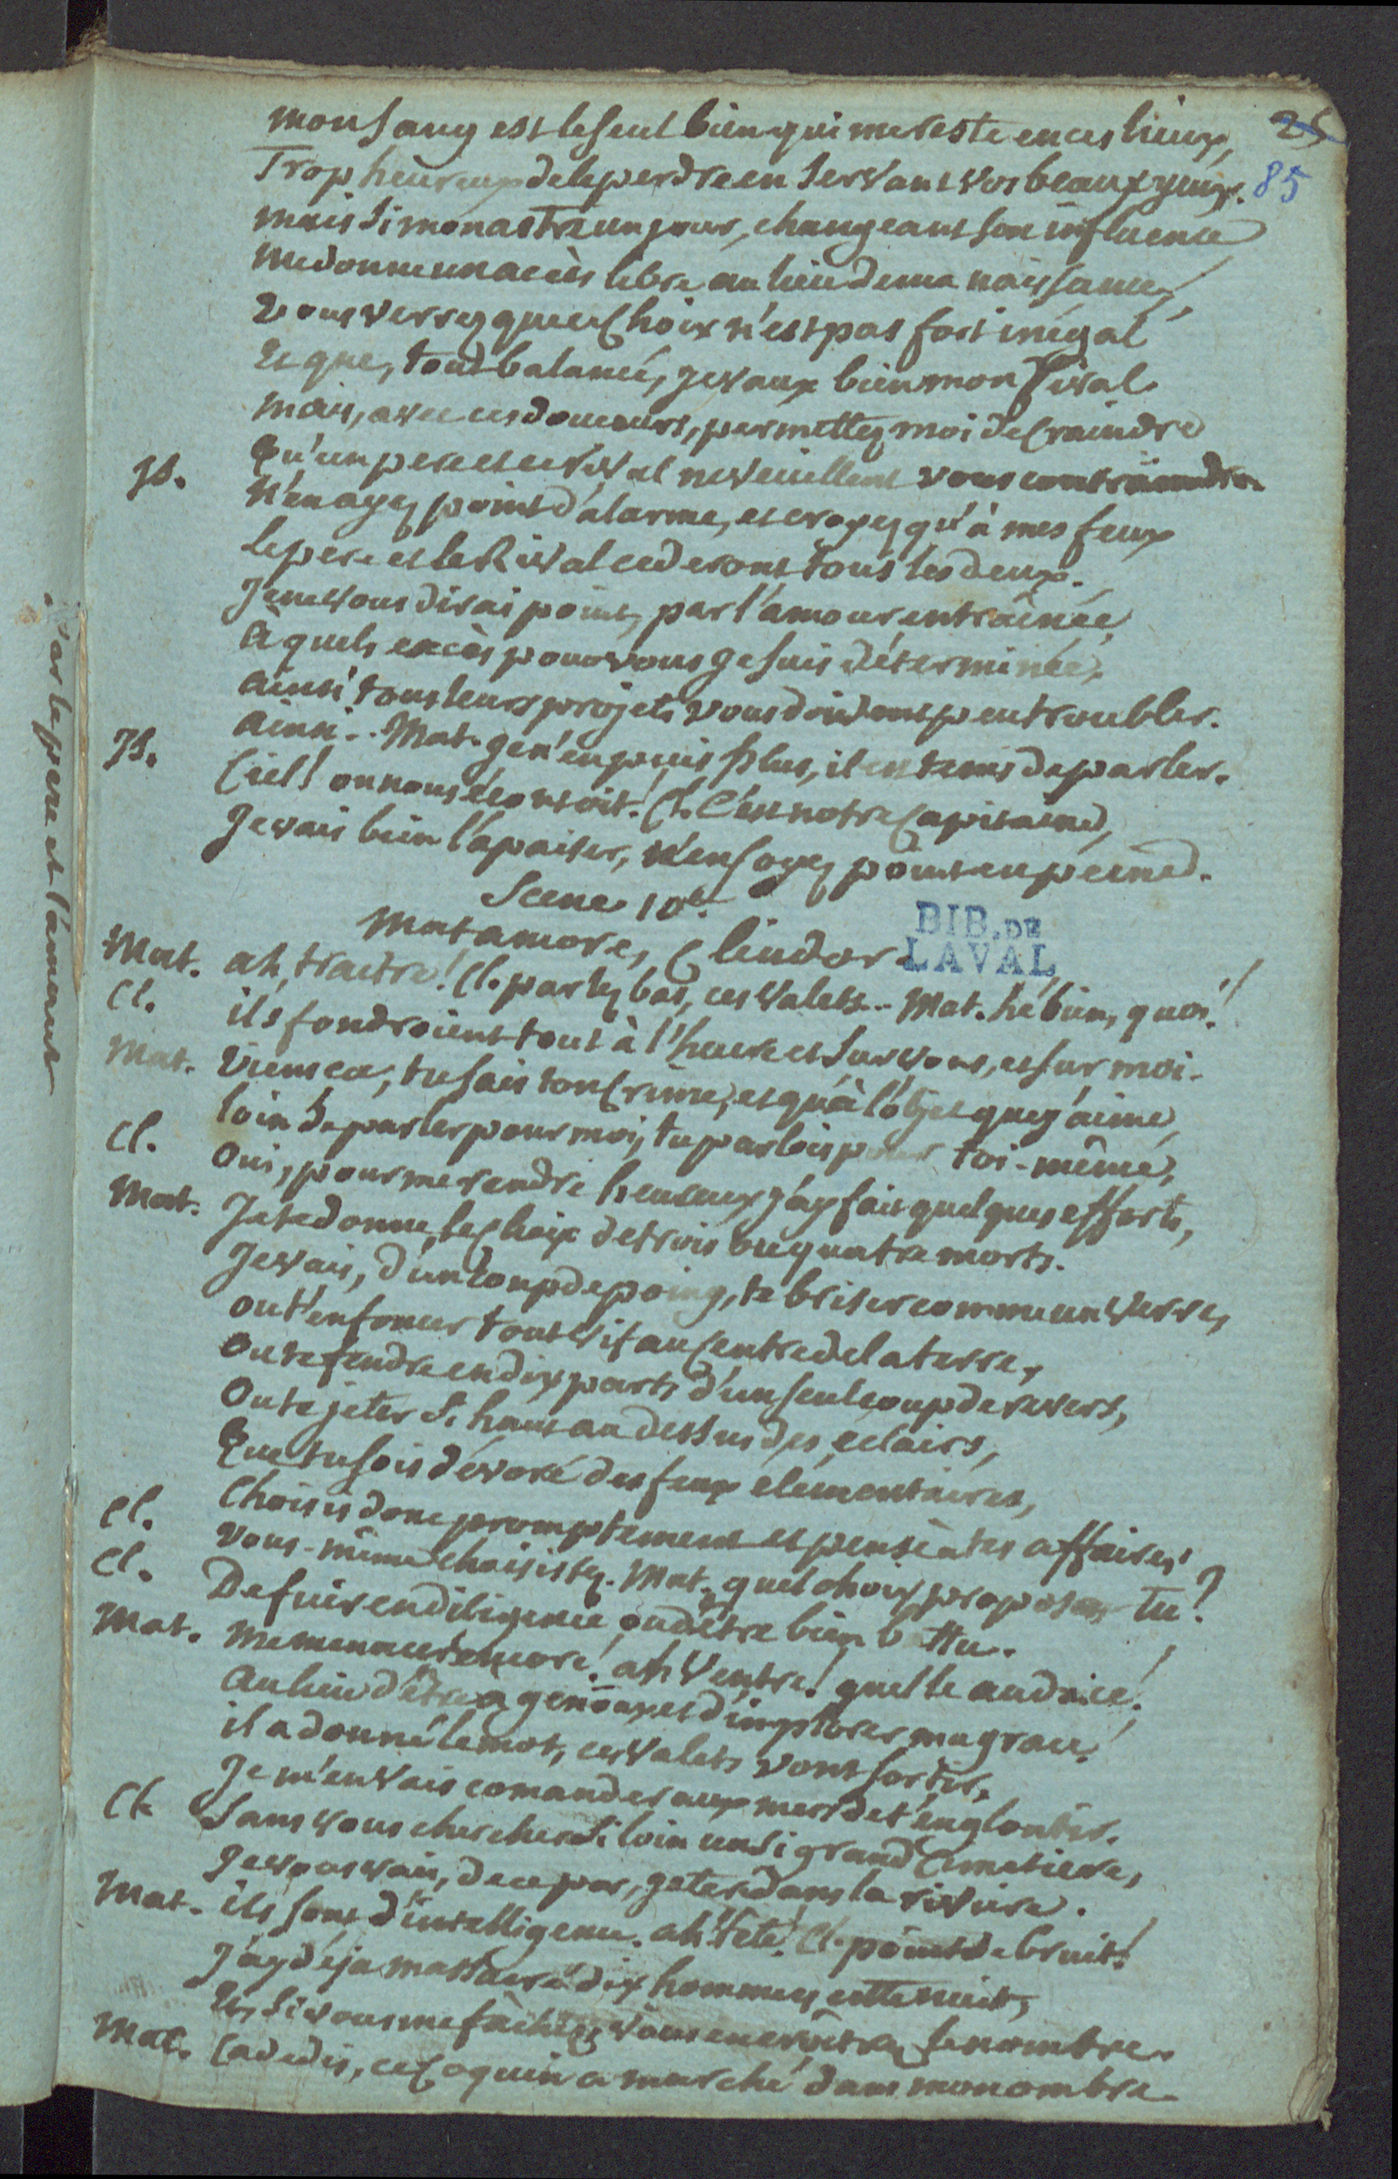 25
85
mon sang est le seul bien qui me reste en ces lieux,
Trop heureux de le perdre en servant vos beaux yeux.
mais si mon astre un jour, changeant son influence
me donne un accès libre au lieu de ma naissance,
Vous verrez que ce Choix n'est pas fort inégal
Et que, tout balancé, je vaux bien mon Rival.
mais, avec ces douceurs, permettez moi de Craindre
Qu'un pere et ce rival ne veuillent vous contraindre.
Is. N'en ayez point d'alarme, et croyez qu'à mes feux
Le pere et le Rival cederont tous les deux.
Je ne vous dirai point, par l'amour entraînée,
à quels excès pour vous je suis déterminée,
ainsi tous leurs projets vous doivent peu troubler.
ainsi.. Mat. je n'en puis plus, il est tems de parler.
Is. Ciel! on nous écoutoit. Cl. C'est notre Capitaine,
Je vais bien l'apaiser, n'en soyez point en peine.
Scene 10e.
Matamore, Clindor.
BIB. DE
LAVAL
Mat. ah, traitre! Cl. parlez bas, ces valets.. Mat. hé bien, quoi!
Cl. ils fondroient tout à l'heure et sur vous, et sur moi.
Mat. Viens ca, tu sais ton Crime, et qu'à l'objet que j'aime,
loin de parler pour moi, tu parlois pour toi-même,
Cl. Oui, pour me rendre heureux j'ay fait quelques efforts,
Mat. Je te donne le Choix de trois ou quatre morts.
Je vais, d'un Coup de poing, te briser comme un verre,
ou t'enfoncer tout vif au Centre de la terre,
ou te fendre en dix parts d'un seul coup de revers,
Ou te jeter si haut au dessus des eclairs,
Que tu sois dévoré des feux élémentaires,
Choisis donc promptement et pense à tes affaires,
Cl. Vous-même choisissez. Mat. quel choix proposes tu?
Cl. De fuir en diligence ou d'être bien battu.
Mat. me menacer encore! ah Ventre! quelle audace!
au lieu d'être à genoux et d'implorer ma grace!
il a donné le mot, ces valets vont sortir,
Je m'en vais comander aux mers de t'engloutir.
Cl. Sans vous chercher si loin un si grand Cimetiere,
Je vous vais, de ce pas, jeter dans la riviere.
Mat. ils sont d'intelligence. ah tête! Cl. point de bruit!
J'ay déja massacré dix hommes cette nuit,
Et, si vous me fâchez, vous en croîtrez le nombre.
Mat. Cadedis, ce Coquin a marché dans mon ombre.
par le pere et l'amant